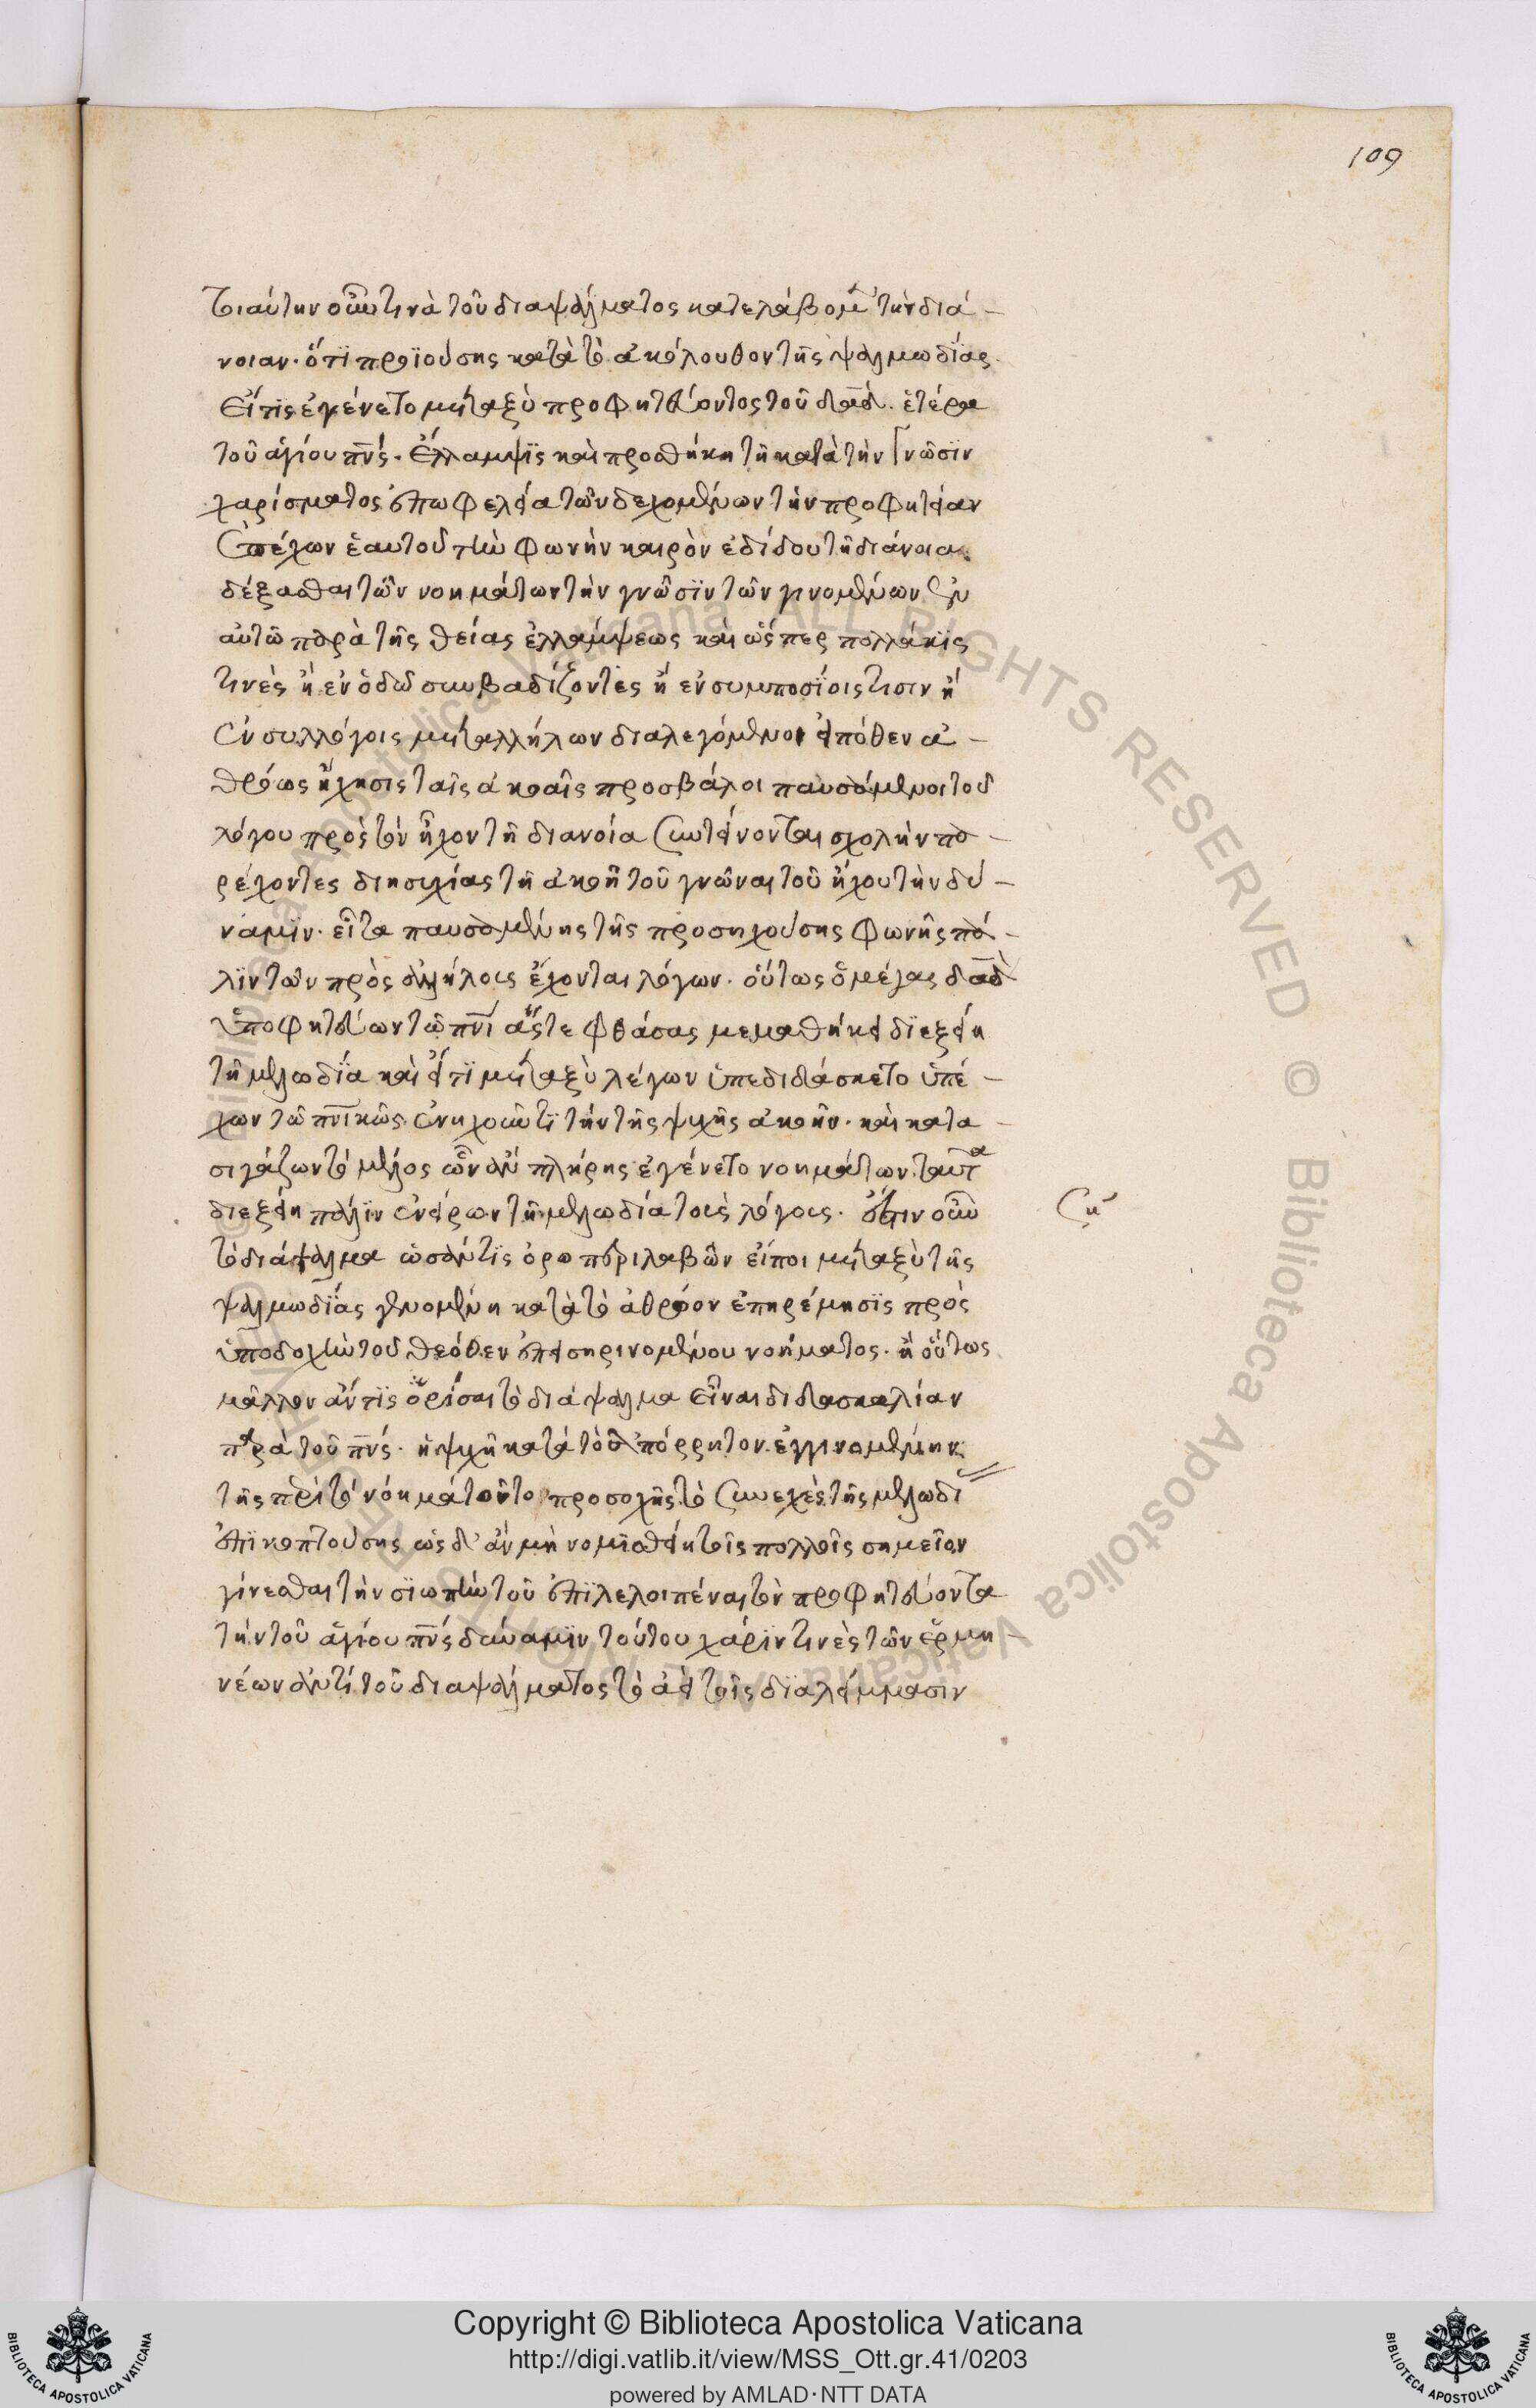 109
τοιαύτην οὖν τινὰ τοῦ διαψάλματος κατελάβομ̅ τὴν διά-
νοιαν· ὅτι προϊούσης κατὰ τὸ ἀκόλουθον τῆς ψαλμωδίας.
εἴ τις ἐγένετο μεταξὺ προφητεύοντος τοῦ δα̅δ. ἑτέρα
τοῦ ἁγίου πν̅ς· ἔλλαμψις καὶ προσθήκη τῆ κατὰ τὴν γνῶσιν
χαρίσματος ἐπωφελεία τῶν δεχομένων τὴν προφητείαν
ἐπέχων ἑαυτοῦ τὴν φωνὴν καιρὸν ἐδίδου τῆ διάνοια
δέξασθαι τῶν νοημάτων τὴν γνῶσιν τῶν γινομένων ἐν
αὐτῶ παρὰ τῆς θείας ἐλλάμψεως καὶ ὥσπερ πολλάκις
τινὲς ἢ ἐν ὁδῶ συμβαδίζοντες ἢ ἐν συμποσίοις τισιν ἢ
ἐν συλλόγοις μεταλλήλων διαλεγόμενοι εἰ πόθεν ἀ-
θρόως ἤχησις ταῖς ἀκοαῖς προσβάλοι παυσάμενοι τοῦ
λόγου πρὸς τὸν ἦχον τῆ διανοία συντείνονται σχολὴν πα-
ρέχοντες διησυχίας τῆ ἀκοῆ τοῦ γνῶναι τοῦ ἤχου τὴν δύ-
ναμιν· εἶτα παυσαμένης τῆς προσηχούσης φωνῆς πά-
λιν τῶν πρὸς ἀλλήλους ἔχονται λόγων· οὕτως ὁ μέγας δα̅δ
ὑποφητεύων τῶ πν̅ι ἅς τε φθάσας μεμαθήκει διεξείη
τῆ μελωδία καὶ εἴ τι μεταξὺ λέγων ὑπεδιδάσκετο ὑπέ-
χων τῶ πν̅ικῶς ἐνηχοῦντι τὴν τῆς ψυχῆς ἀκοήν· καὶ κατα-
σιγάζων τὸ μέλος ὧν ἂν πλήρης ἐγένετο νοημάτων ταῦτα
διεξείη πάλιν ἐνείρων τῆ μελωδία τοὺς λόγους· ἔστιν οὖν
ση
τὸ διάψαλμα ὡς ἄν τις ὅρω περιλαβὼν εἴποι μεταξὺ τῆς
ψαλμωδίας γενομένη κατὰ τὸ ἀθρόον ἐπηρέμησις πρὸς
ὑποδοχὴν τοῦ θεόθεν ἐπεισκρινομένου νοήματος· ἢ οὕτως
μᾶλλον ἄν τις ὁρίσαι τὸ διάψαλμα εἶναι διδασκαλίαν
παρὰ τοῦ πν̅ς· ἡ ψυχῆ κατὰ τὸ ἀπόρρητον ἐγγινομένην
τῆς περὶ τὸ νόημα τοῦτο προσοχῆς τὸ συνεχὲς τῆς μελωδί
ἐπικοπτούσης ὡς δ' ἂν μὴ νομισθείη τοῖς πολλοῖς σημεῖον
γίνεσθαι τὴν σιωπὴν τοῦ ἐπιλελοιπέναι τὸν προφητεύοντα
τὴν τοῦ ἁγίου πν̅ς δύναμιν τούτου χάριν τινὲς τῶν ἑρμη-
νέων ἀντὶ τοῦ διαψάλματος τὸ ἀεὶ τοῖς διαλείμμασιν
Copyright © Biblioteca Apostolica Vaticana
http://digi.vatlib.it/view/MSS_Ott.gr.41/0203
powered by AMLAD·NTT DATA